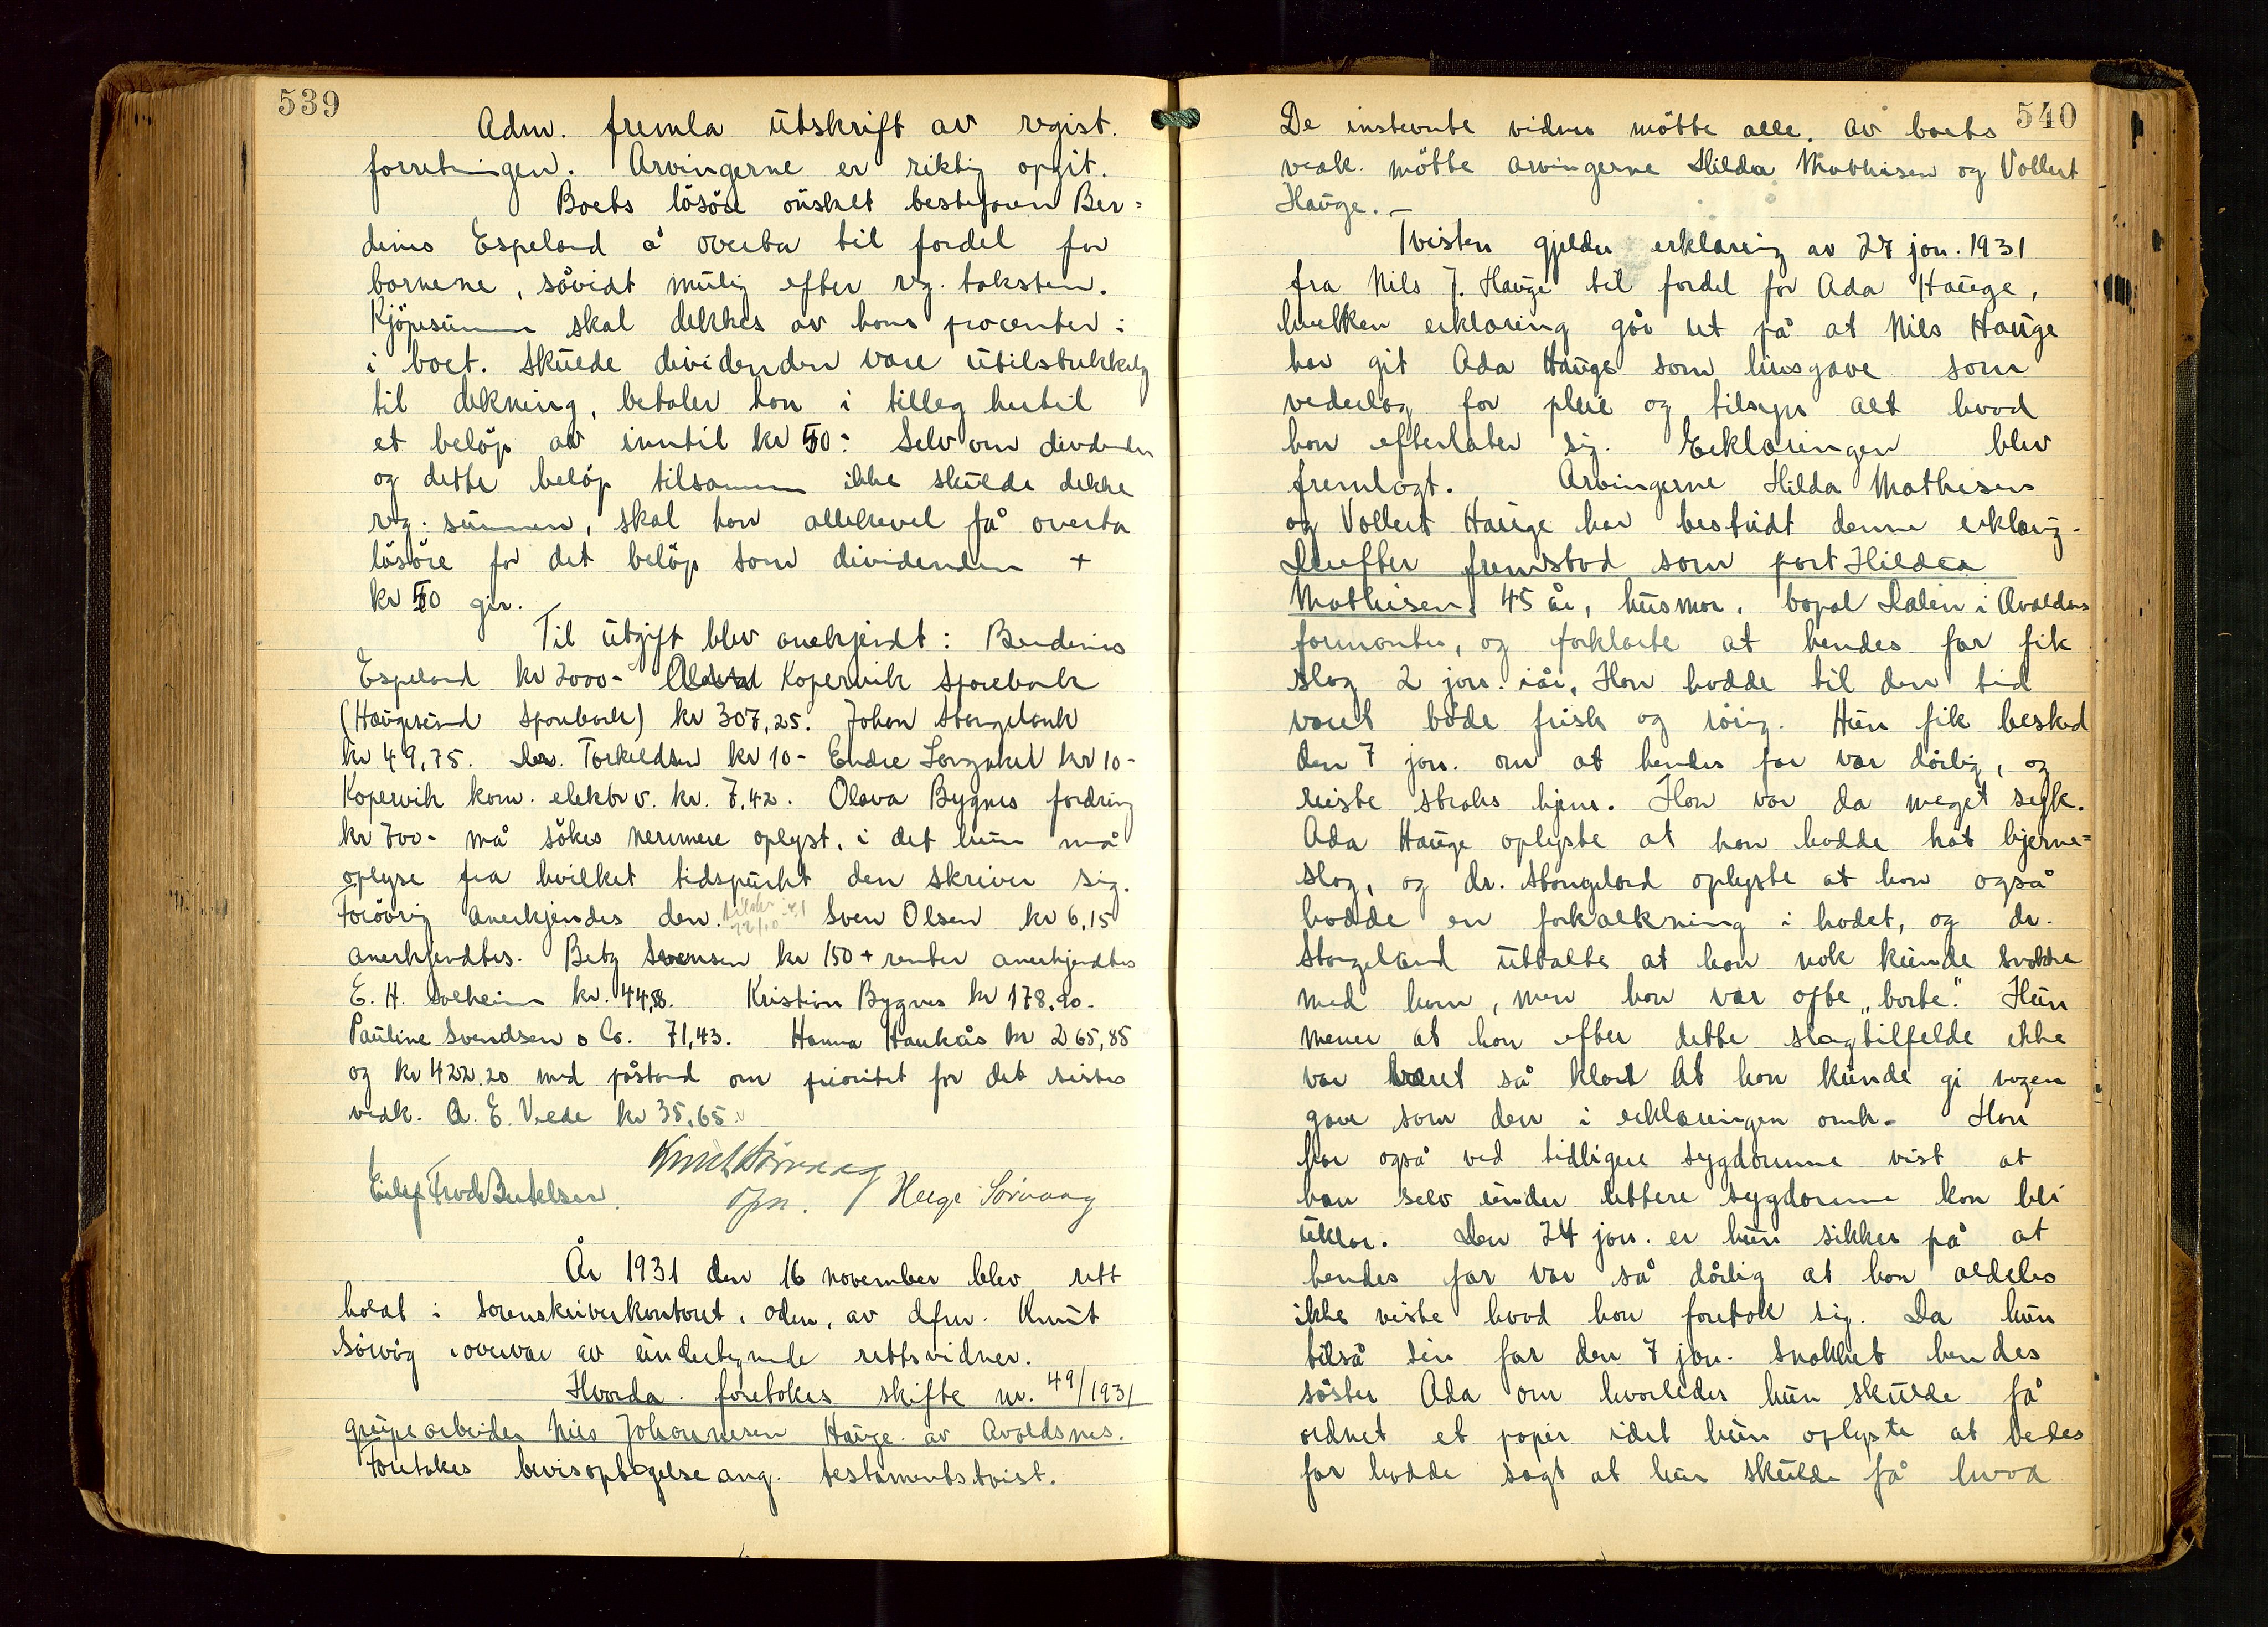 539
Adm. fremla utskrift av regist.
forretningen. Arvingerne er riktig opgit.
Boets løsøre ønsket bestefaren Ber=
dines Espeland å overta til fordel for
barnene, såvidt mulig efter reg. taksten.
Kjøpesummen skal dekkes av hans procenter
i boet. Skulde dividenden være utilstrekkelig
til dekning, betaler han i tillæg hertil
et beløp av inntil kr 50.- Selv om dividenden
og dette beløp tilsammen ikke skulde dekke
reg. summen, skal han allikevel få overta
løsøre for det beløp som dividenden +
kr 50 gir.
Til utgift blev anerkjendt: Berdines
Espeland kr 2000- Kopervik Sparebank
(Haugesund Sparebank) kr 307,25. Johan Stangeland
kr 49,75. Torkeldsen kr 10- Endre kr 10-
Kopervik kom. elektr v. kr. 7,42. Olava Bygnes fordring
kr 700- må søkes nærmere oplyst, i det hun må
oplyse fra hvilket tidspunkt den skriver sig.
Forøvrig anerkjendes den. Sven Olsen kr 6,15
anerkjendtes. Betzy Svensen kr 150 + renter anerkjendtes
E. H. Solheim kr. 44,58. Kristian Bygnes kr 178,90.
Pauline Svendsen o Co. 71,43. Hanna Haukås kr 265,85
og kr 422.20 med påstand om prioritet for det sistes
vedk. A. E. Velde kr 35,65
Knut Sørvaag
Eilef Frode Bertelsen. dfm. Helge Sørvaag
År 1931 den 16 november blev rett
holdt i sorenskriverkontoret, Oden, av dfm. Knut
Sørvåg i overvær av undertegnede rettsvidner.
Hvorda. foretokes skifte nr. 49/1931
grubearbeider Nils Johannesen Hauge av Avaldsnes.
Foretokes bevisoptagelse ang. testamentstvist.
540
De instevnte vidner møtte alle. Av boets
vedk. møtte arvingerne Hilda Mathisen og Vollert
Hauge.-
Tvisten gjelder erklæring av 27 jan. 1931
fra Nils J. Hauge til fordel for Ada Hauge,
hvilken erklæring går ut på at Nils Hauge
har git Ada Hauge som livsgave som
vederlag for pleie og tilsyn alt hvad
han efterlater sig. Erklæringen blev
fremlagt. Arvingerne Hilda Mathisen
og Vollert Hauge har bestridt denne erklæring.
Derefter fremstod som part Hilda
Mathisen, 45 år, husmor, bopæl Dalen i Avaldsnes
formantes, og forklarte at hendes far fik
slag 2 jan. iår, Han hadde til den tid
været både frisk og rørig. Hun fik besked
den 7 jan. om at hendes far var dårlig, og
reiste straks hjem. Han var da meget syk.
Ada Hauge oplyste at han hadde hat hjerne=
slag, og dr. Stangeland oplyste at han også
hadde en forkalkning i hodet, og dr.
Stangeland uttalte at han nok kunde snakke
med ham, men han var ofte „borte“. Hun
mener at han efter dette slagtilfelde ikke
var været så klar at han kunde gi nogen
gave som den i erklæringen omh.- Han
har også ved tidligere sygdomme vist at
han selv under lettere sygdomme kan bli
uklar. Den 24 jan. er hun sikker på at
hendes far var så dårlig at han aldeles
ikke viste hvad han foretok sig. Da hun
tilså sin far den 7 jan. snakket hendes
søster Ada om hvorledes hun skulde få
ordnet et papir idet hun oplyste at deres
far hadde sagt at hun skulde få hvad